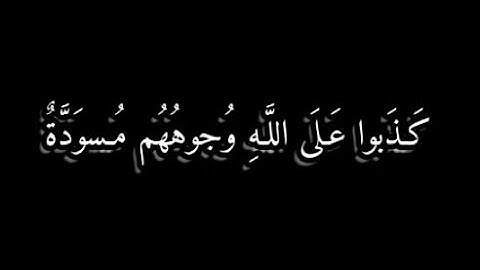 كَذَبوا عَلَى اللَّهِ وُجوهُهُم مُسوَدَّةٌ